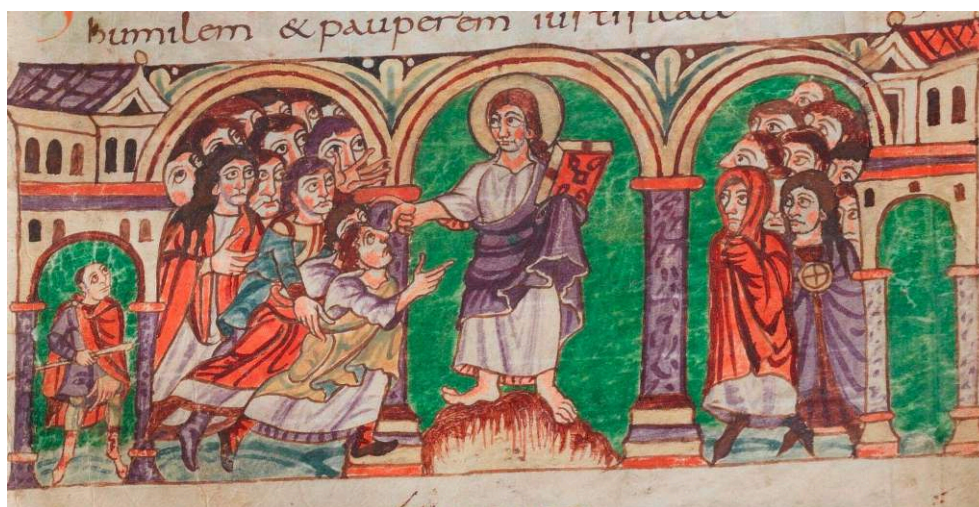 humilem & pauperem iustificate